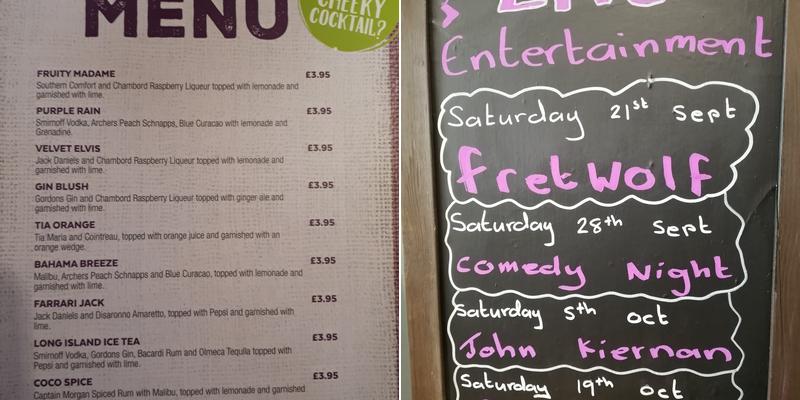 MENU
CHEEKY
COCKTAIL?
FRUITY MADAME £3.95
Southern Comfort and Chambord Raspberry Liqueur topped with lemonade and
garnished with lime.
PURPLE RAIN £3.95
Smirnoff Vodka, Archers Peach Schnapps, Blue Curacao with lemonade and
Grenadine.
VELVET ELVIS £3.95
Jack Daniels and Chambord Raspberry Liqueur topped with lemonade and
garnished with lime.
GIN BLUSH £3.95
Gordons Gin and Chambord Raspberry Liqueur topped with ginger ale and
garnished with lime.
TIA ORANGE £3.95
Tia Maria and Cointreau, topped with orange juice and garnished with an
orange wedge.
BAHAMA BREEZE £3.95
Malibu, Archers Peach Schnapps and Blue Curacao, topped with lemonade and
garnished with lime.
FARRARI JACK £3.95
Jack Daniels and Disaronno Amaretto, topped with Pepsi and garnished with
lime.
LONG ISLAND ICE TEA £3.95
Smirnoff Vodka, Gordons Gin, Bacardi Rum and Olmeca Tequila topped with
Pepsi and garnished with lime.
COCO SPICE £3.95
Captain Morgan Spiced Rum with Malibu, topped with lemonade and garnished
Live
Entertainment
Saturday 21st Sept
fretwolf
Saturday 28th Sept
Comedy Night
Saturday 5th Oct
John Kiernan
Saturday 19th Oct